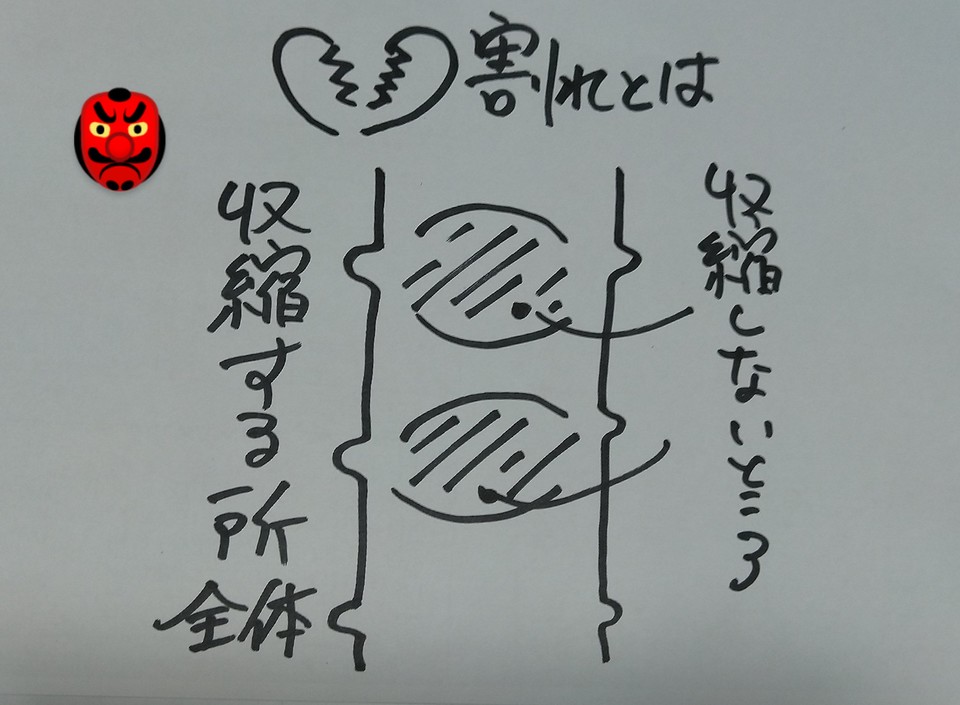 割れとは
収縮する所
全体
収縮しないところ